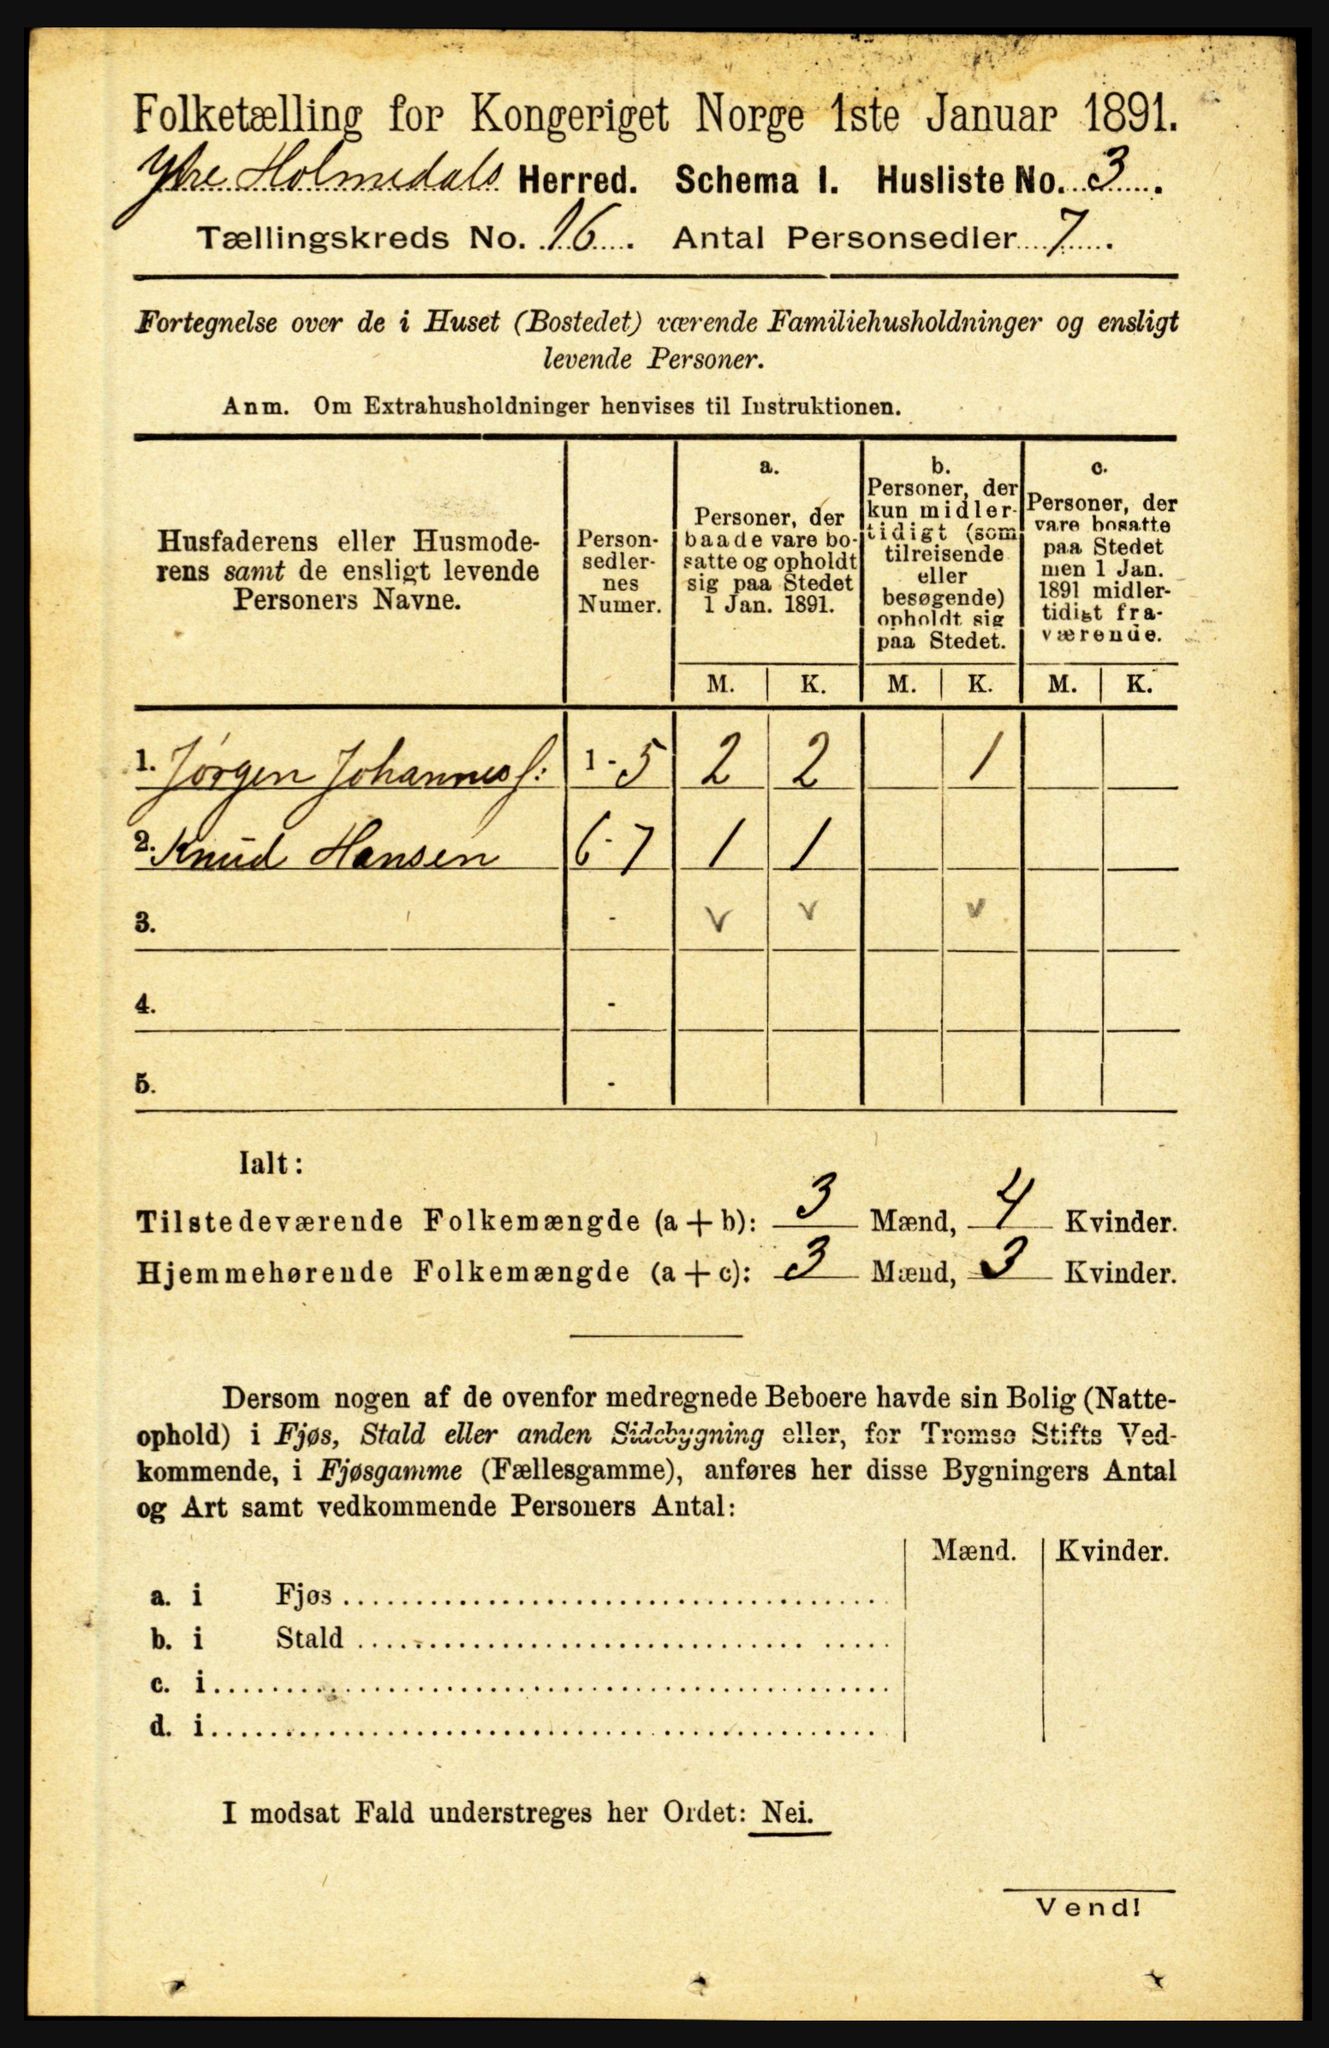 Folketælling for Kongeriget Norge 1ste Januar 1891.
Ytre Holmedals Herred. Schema I. Husliste No. 3.
Tællingskreds No. 16. Antal Personsedler 7.
Fortegnelse over de i Huset (Bostedet) værende Familiehusholdninger og ensligt
levende Personer.
Anm. Om Extrahusholdninger henvises til Instruktionen.
Husfaderens eller Husmode-
rens samt de ensligt levende
Personers Navne.
Person-
sedler-
nes
Numer.
a.
Personer, der
baade vare bo-
satte og opholdt
sig paa Stedet
1 Jan. 1891.
b.
Personer, der
kun midler-
tidigt (som
tilreisende
eller
besøgende)
opholdt sig
paa Stedet.
c.
Personer, der
vare bosatte
paa Stedet
men 1 Jan.
1891 midler-
tidigt fra-
værende.
M. K. M. K. M. K.
1. Jørgen Johannes f: 1-5 2 2 1
2. Knud Hansen 6-7 1 1
3. - v v v
4. -
5. -
Ialt:
Tilstedeværende Folkemængde (a + b): 3 Mænd, 4 Kvinder.
Hjemmehørende Folkemængde (a + c): 3 Mænd, 3 Kvinder.
Dersom nogen af de ovenfor medregnede Beboere havde sin Bolig (Natte-
ophold) i Fjøs, Stald eller anden Sidebygning eller, for Tromsø Stifts Ved-
kommende, i Fjøsgamme (Fællesgamme), anføres her disse Bygningers Antal
og Art samt vedkommende Personers Antal:
Mænd. Kvinder.
a. i Fjøs
b. i Stald
c. i
d. i
I modsat Fald understreges her Ordet: Nei.
Vend!